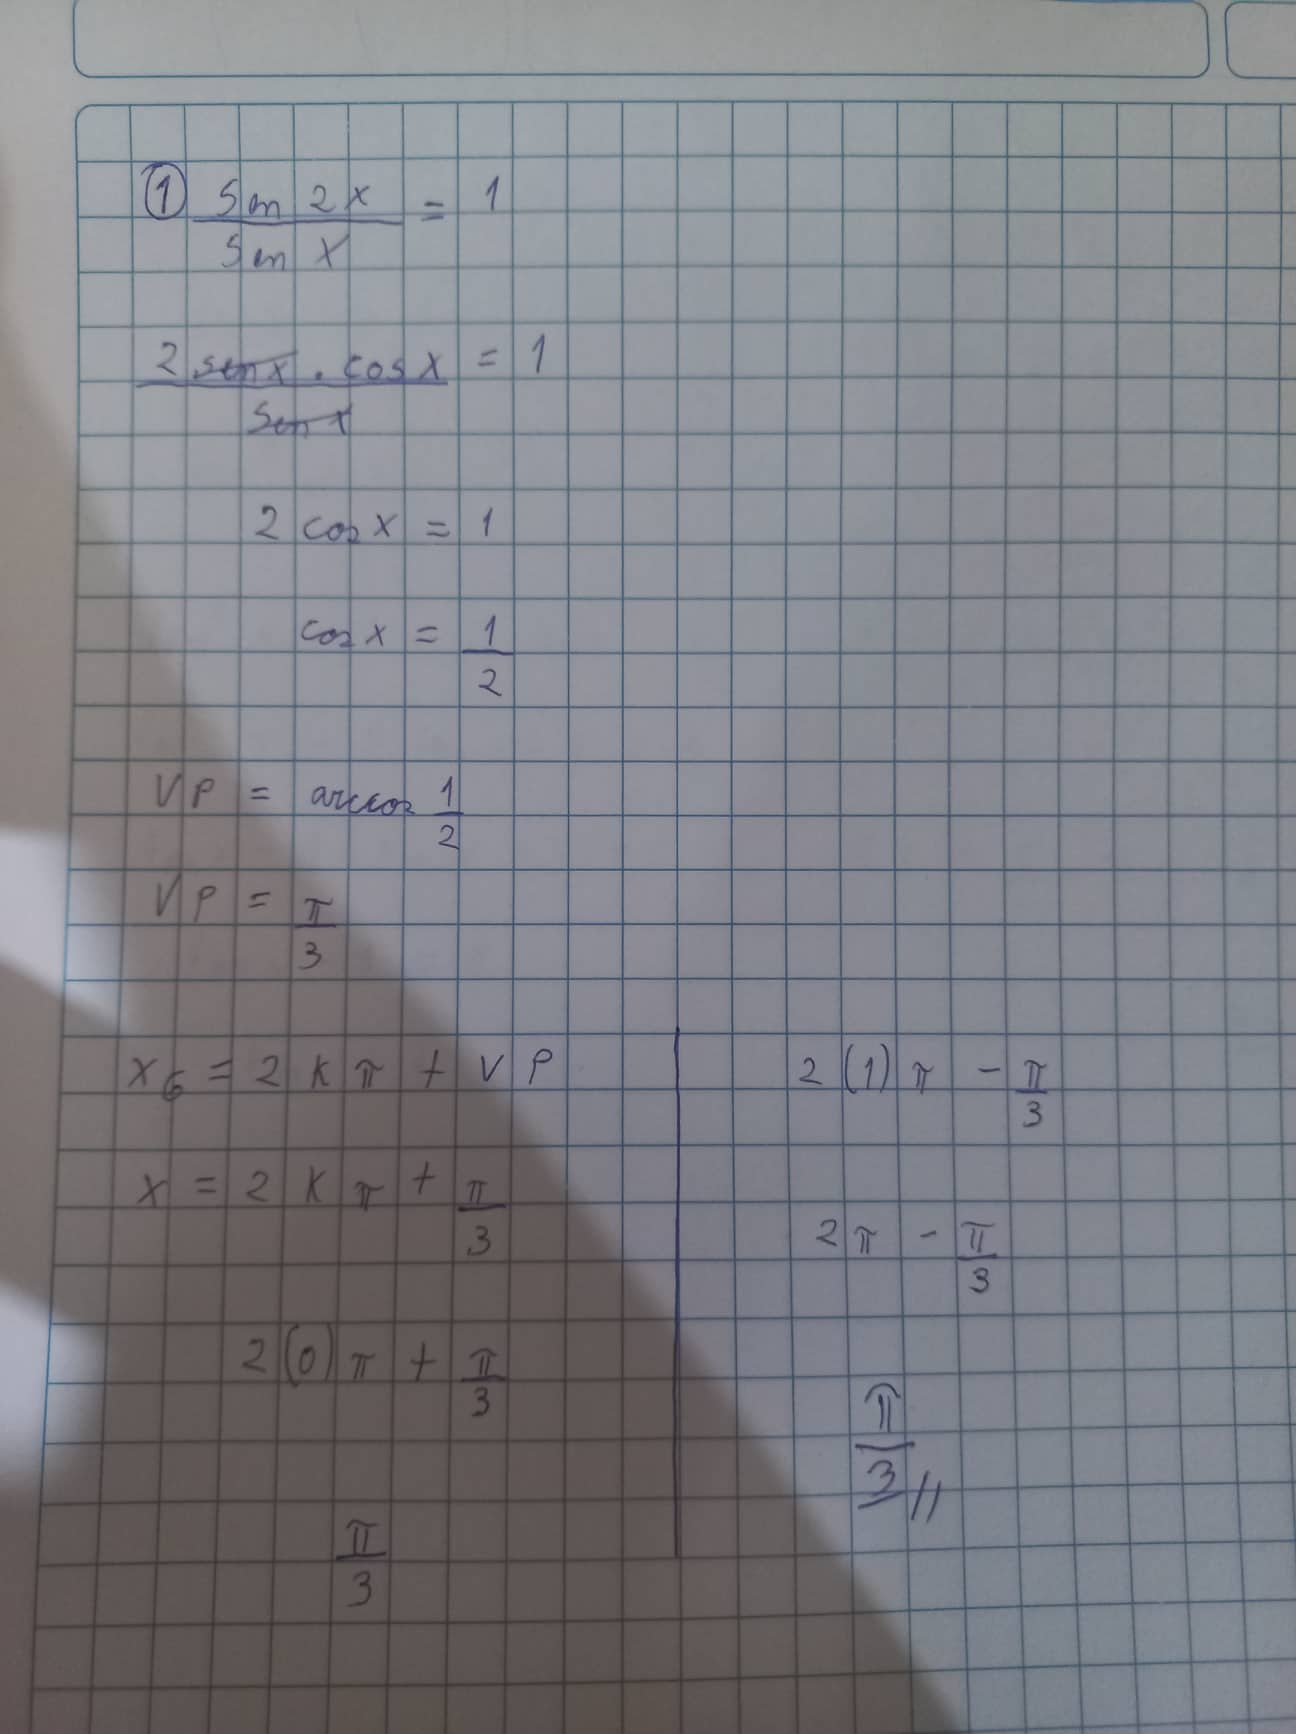 ① Sen 2x / Sen x = 1
2 senx . cos x / Sen x = 1
2 cos x = 1
cos x = 1/2
VP = arccos 1/2
VP = π/3
x_G = 2 k π + VP
x = 2 k π + π/3
2 (0) π + π/3
π/3
2 (1) π - π/3
2π - π/3
π/3 //